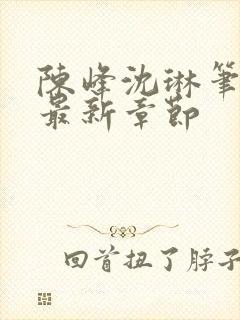 陳峰沈琳筆
最新章節
回首扭了脖子